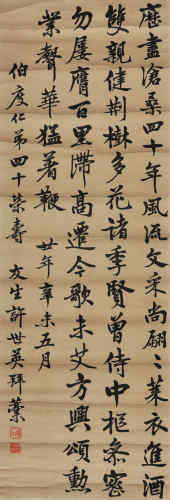 歷盡滄桑四十年風流文采尚翩〻萊衣進酒
雙親健荆樹多花諸季賢曾侍中樞參密
勿屢膺百里滯高遷今歌未艾方興頌勳
業聲華猛著鞭 廿年辛未五月
伯度仁弟四十榮壽 友生許世英拜藁